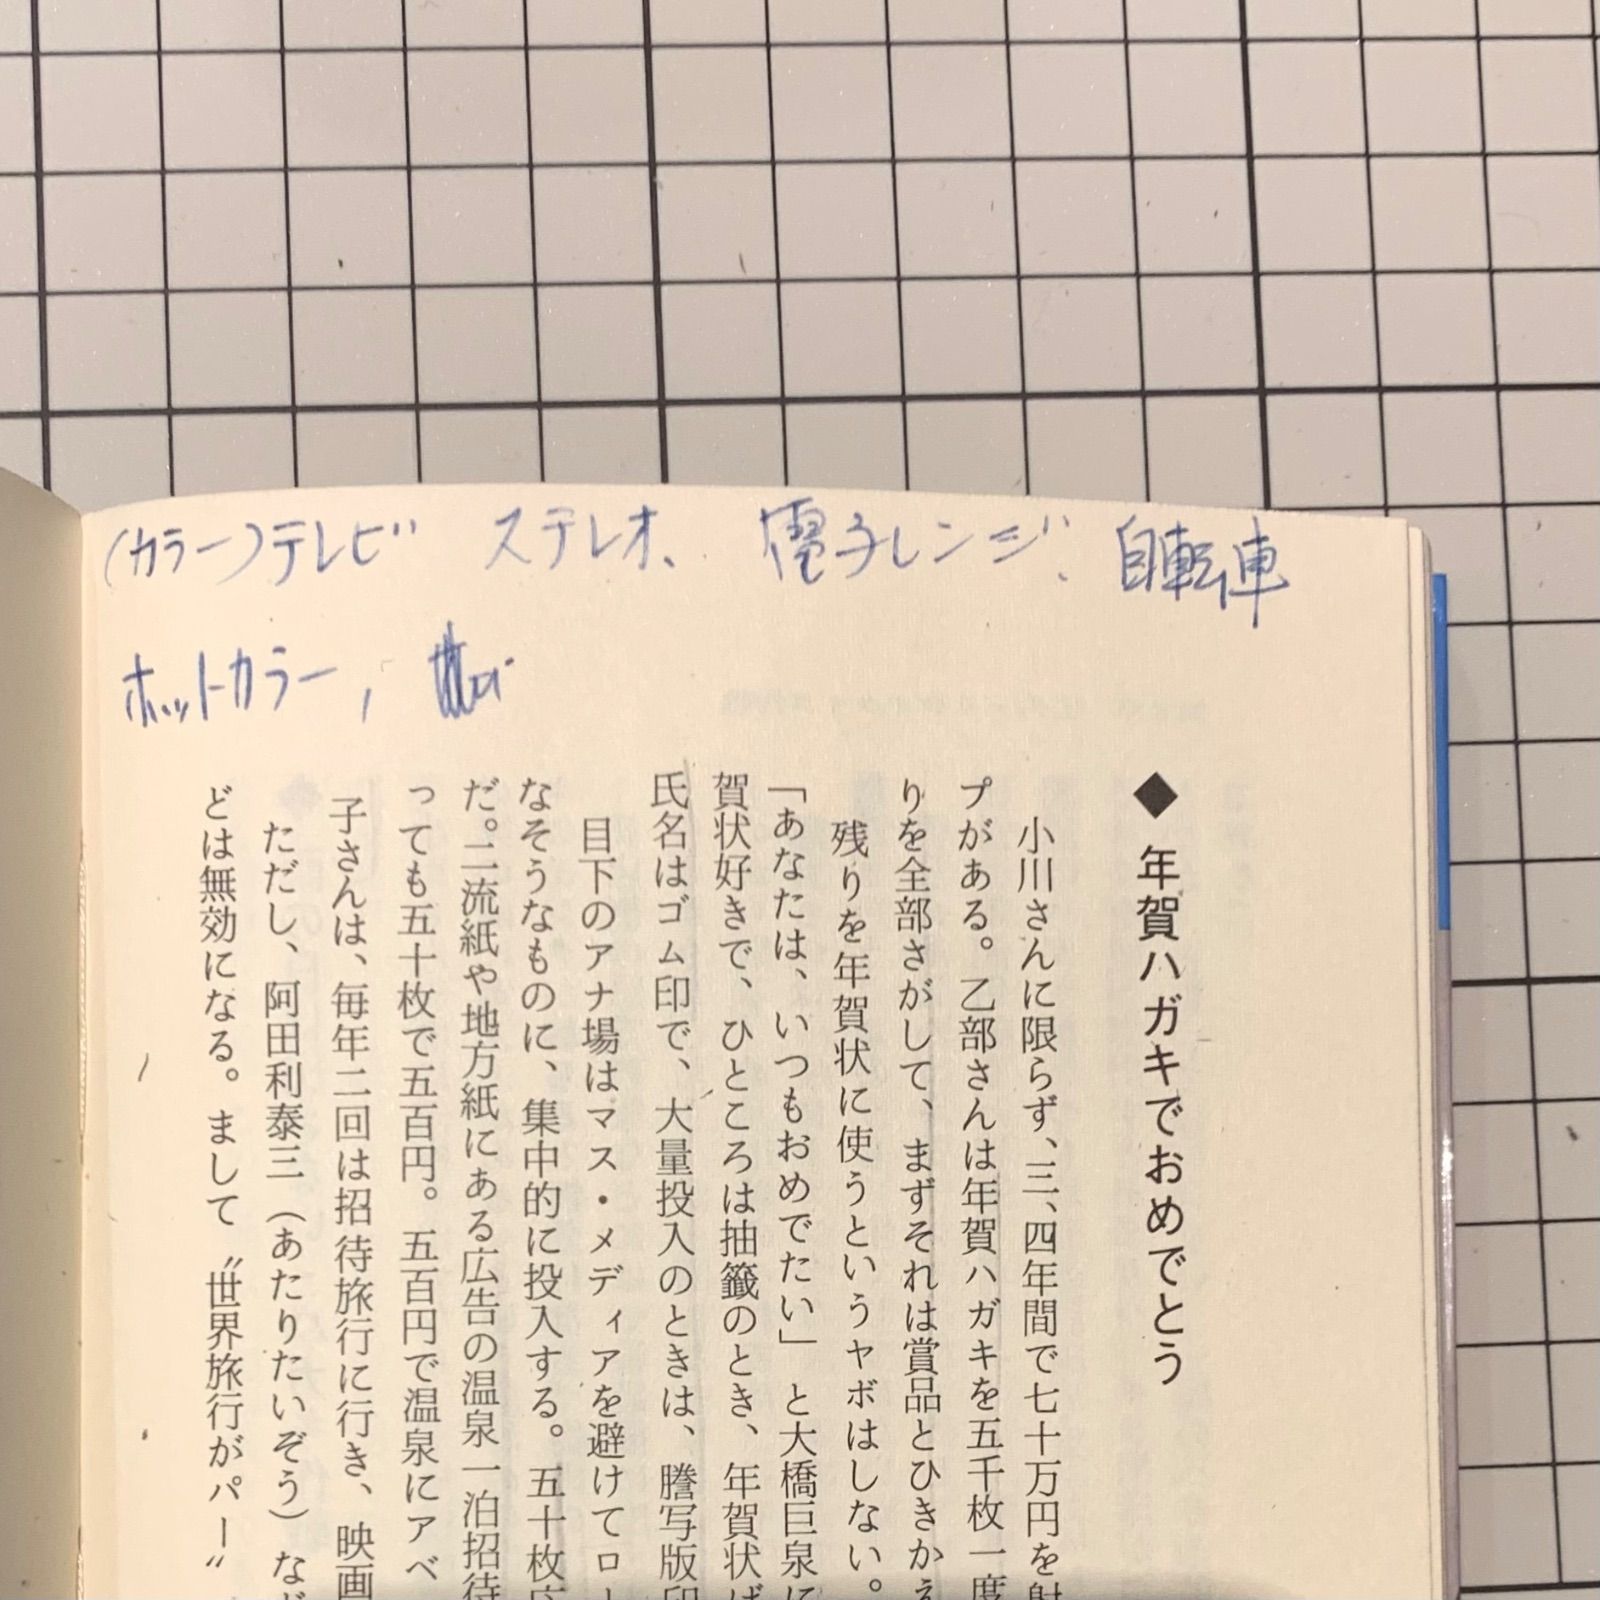 (カラー)テレビ ステレオ、 電子レンジ、 自転車
ホットカラー,
◆ 年賀ハガキでおめでとう
小川さんに限らず、三、四年間で七十万円を射
プがある。乙部さんは年賀ハガキを五千枚一度
りを全部さがして、まずそれは賞品とひきかえ
残りを年賀状に使うというヤボはしない。
「あなたは、いつもおめでたい」と大橋巨泉に
賀状好きで、ひところは抽籤のとき、年賀状ば
氏名はゴム印で、大量投入のときは、謄写版印
目下のアナ場はマス・メディアを避けてロー
なそうなものに、集中的に投入する。五十枚応
だ。二流紙や地方紙にある広告の温泉一泊招待
っても五十枚で五百円。五百円で温泉にアベ
子さんは、毎年二回は招待旅行に行き、映画
ただし、阿田利泰三(あたりたいぞう)など
どは無効になる。まして〝世界旅行がパー〟